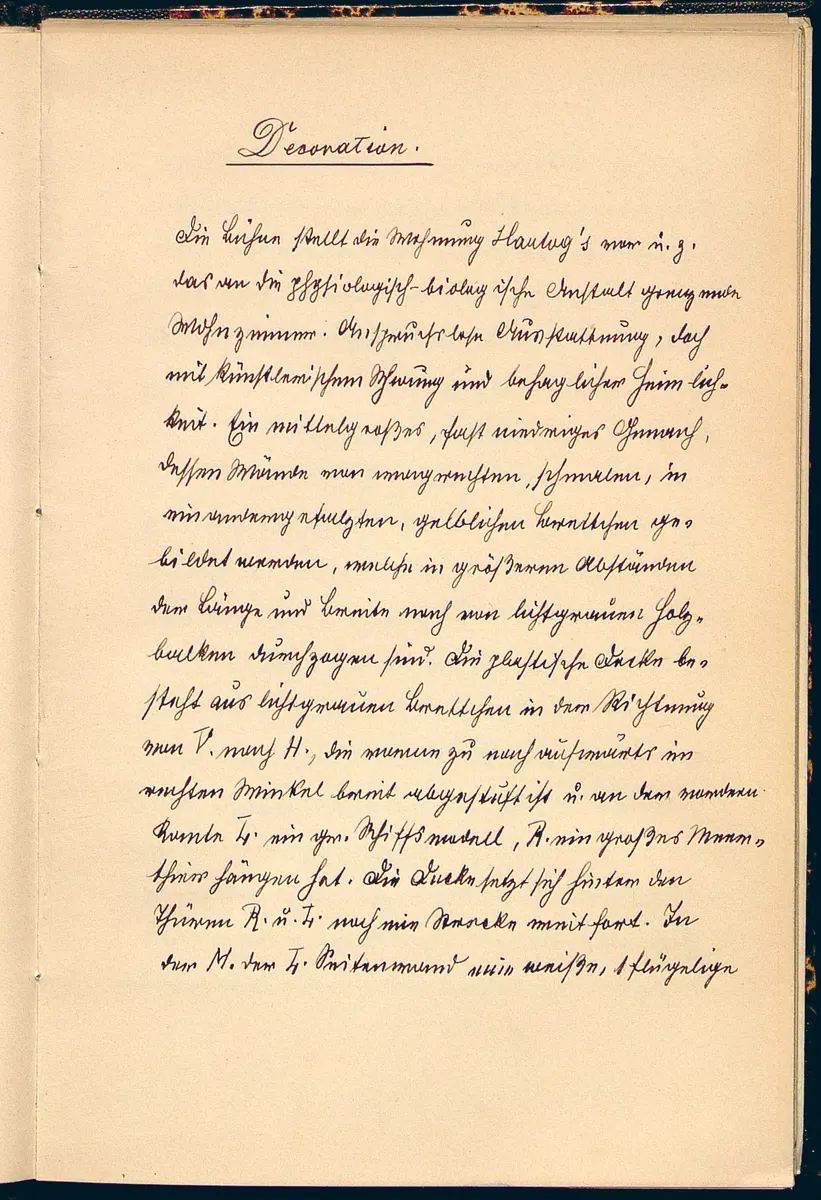 Decoration.
Die Bühne stellt die Wohnung Hartog's vor u. z.
das an die physiologisch-biologische Anstalt grenzende
Wohnzimmer. Anspruchslose Ausstattung, doch
mit künstlerischem Schwung und behaglicher Heimlich-
keit. Ein mittelgroßes, fast niedriges Gemach,
dessen Wände von wagrechten, schmalen, in
einandergefalzten, gelblichen Brettchen ge-
bildet werden, welche in größeren Abständen
der Länge und Breite nach von lichtgrauen Holz-
balken durchzogen sind. Die plastische Decke be-
steht aus lichtgrauen Brettchen in der Richtung
von V. nach H., die vorne zu nach aufwärts im
rechten Winkel breit abgestuft ist u. an der vordern
Kante L. ein gr. Schiffsmodell, R. ein großes Meer-
thier hängen hat. Die Decke setzt sich hinter den
Thüren R. u. L. noch eine Strecke weit fort. In
der M. der L. Seitenwand eine weiße, 1 flügelige